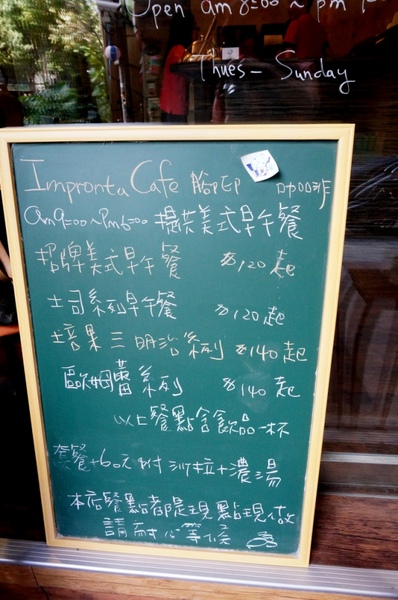 Open am 8=00 ~ pm
Thues - Sunday
Impronta Cafe 腳印 咖啡
am9=00~Pm6=00 提供美式早午餐
招牌美式早午餐 $120起
土司系列早午餐 $120起
培果三明治系列 $140起
歐姆蕾系列 $140起
以上餐點含飲品一杯
套餐+60元附沙拉+濃湯
本店餐點都是現點現做
請耐心等候